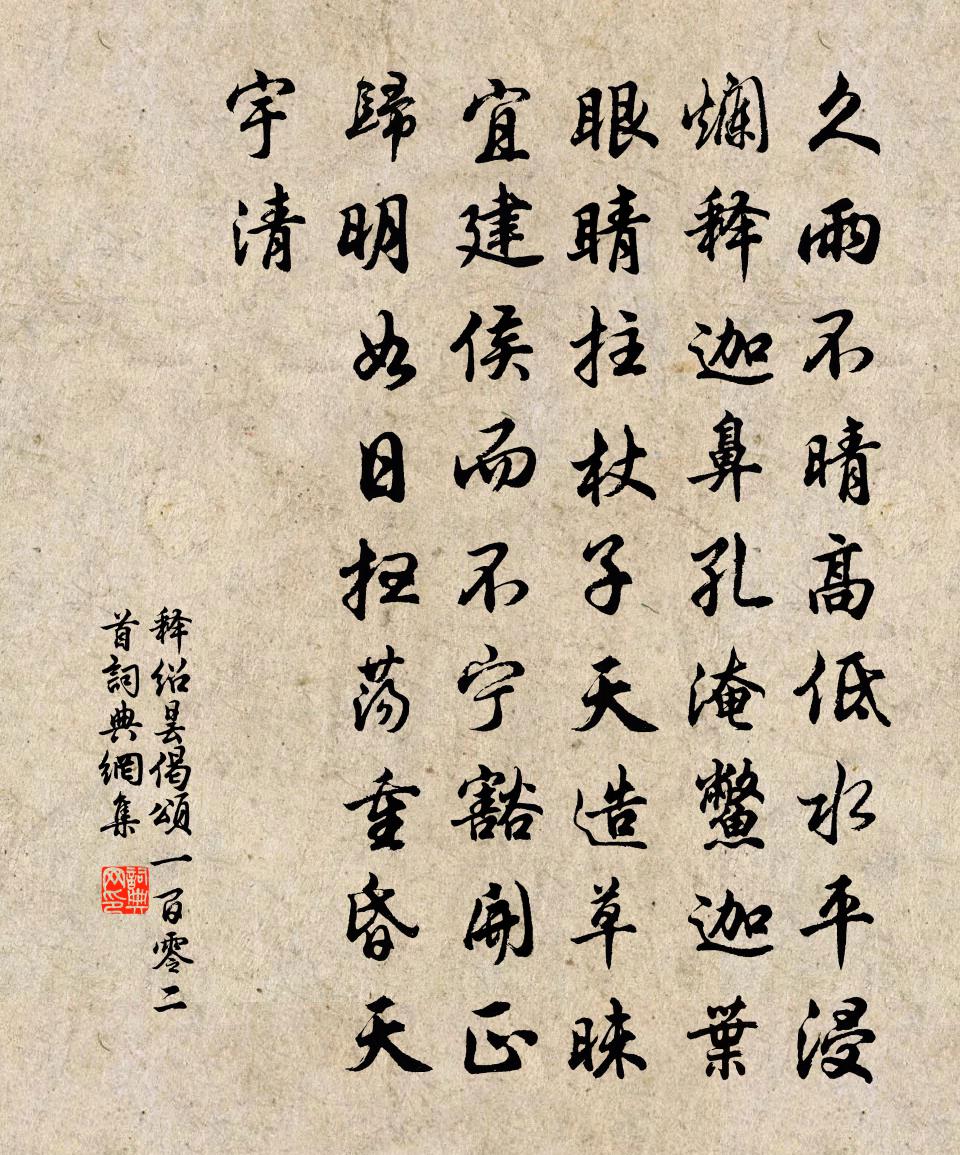 久雨不晴高低水平浸
爛释迦鼻孔淹鱉迦葉
眼晴拄杖子天造草昧
宜建侯而不宁豁開正
歸明如日扫荡重昏天
宇清
释紹昙偈頌一百零二
首詞典網集
詞典
网印